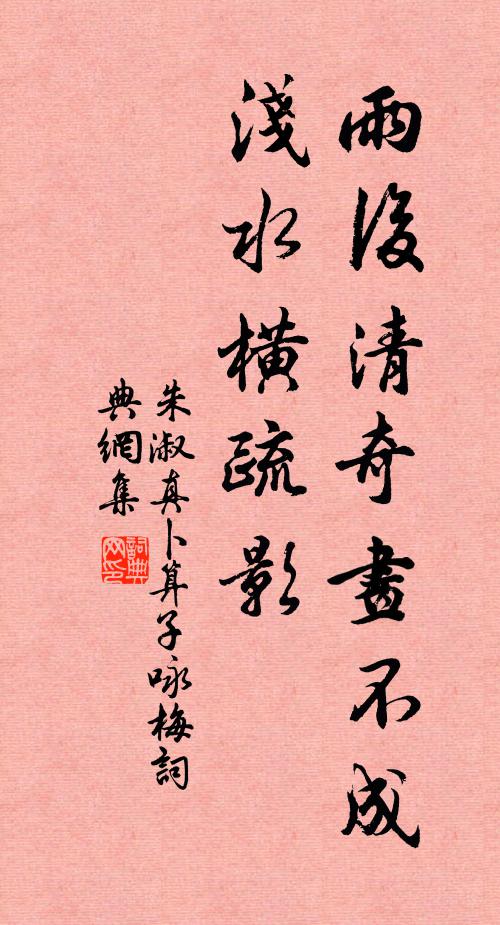 雨後清奇畫不成
淺水橫疏影
朱淑真卜算子咏梅詞
典網集
詞典網印